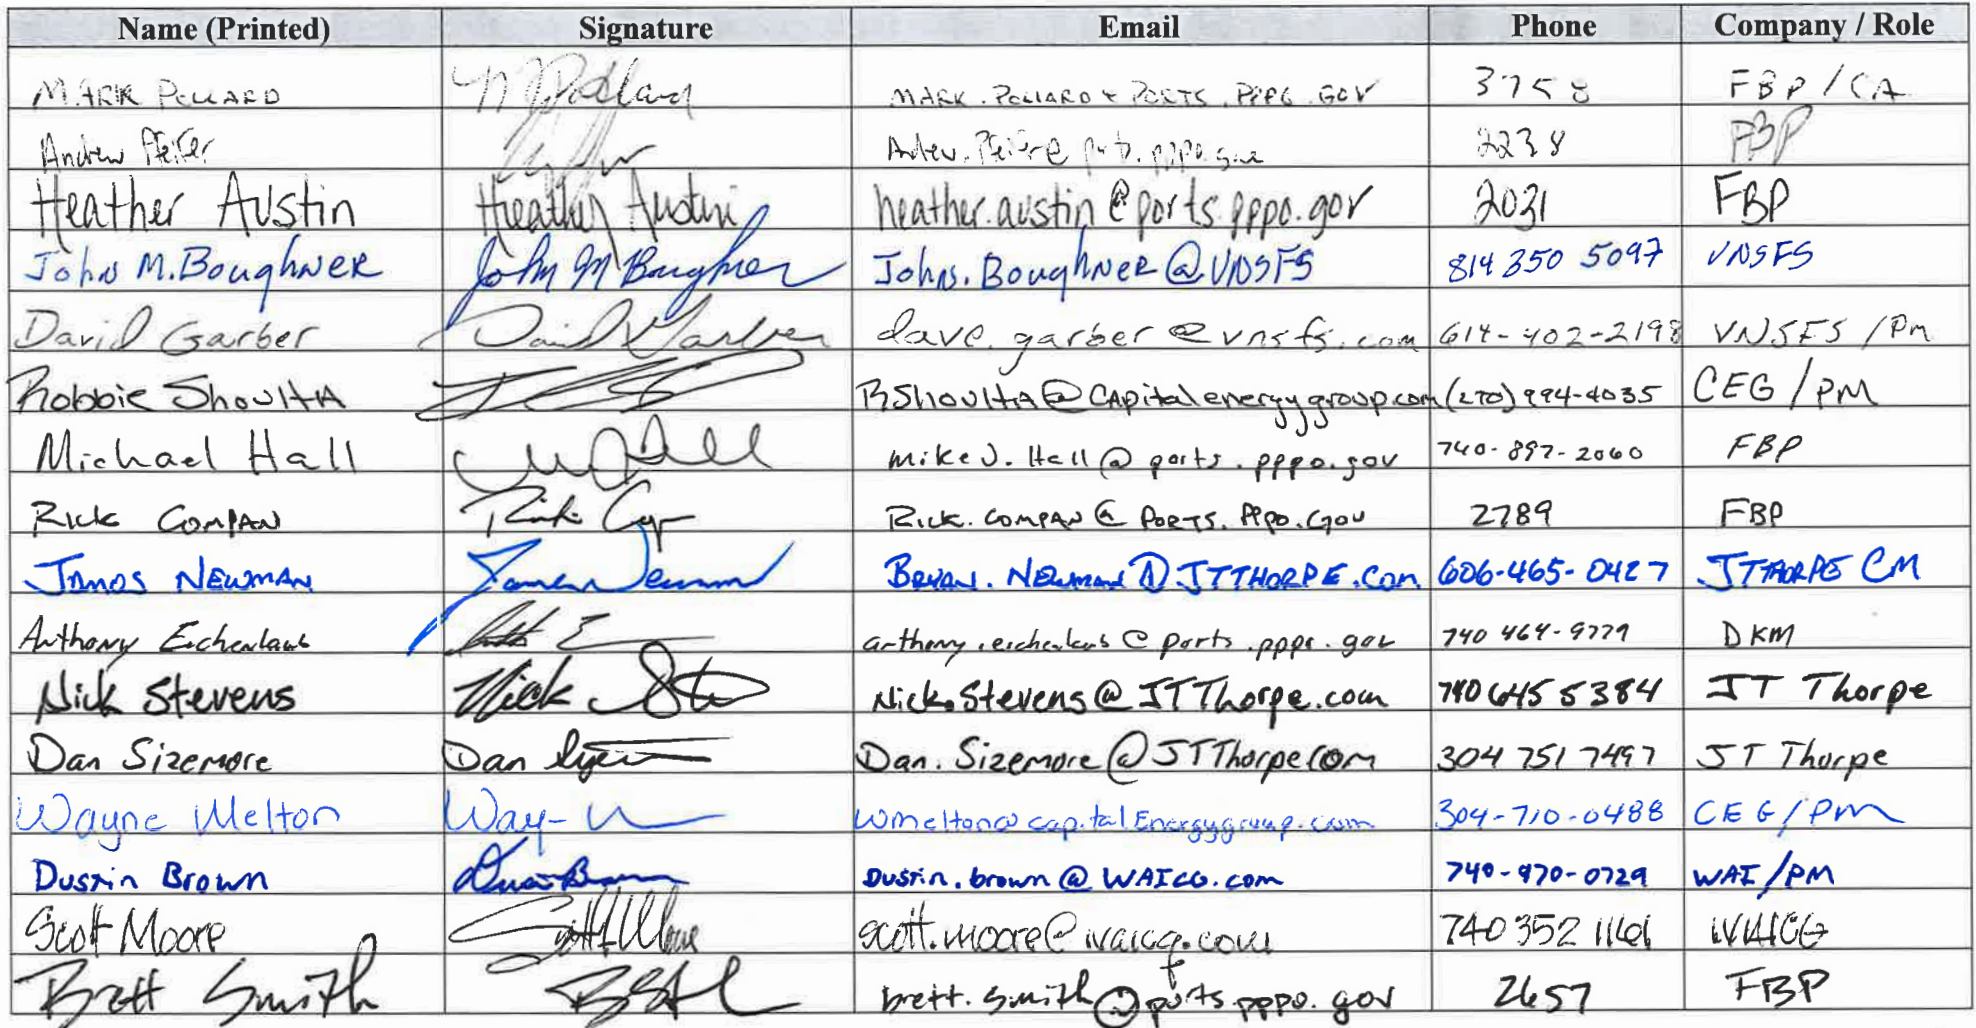 Name (Printed) Signature Email Phone Company / Role
MARK POLLARD M Pollard MARK.POLLARD @ PORTS.PPPO.GOV 3758 FBP/CA
Andrew Pfeifer 2238 FBP
Heather Austin Heather Austin heather.austin@ports.pppo.gov 2031 FBP
John M. Boughner John M Boughner John.Boughner@VNSFS 814 350 5097 VNSFS
David Garber David Garber dave.garber@vnsfs.com 614-402-2198 VNSFS/PM
Robbie Shoulta RShoulta@Capitalenergygroup.com (270) 994-4035 CEG/PM
Michael Hall M Hall mikeJ.Hall@ports.pppo.gov 740-897-2060 FBP
Rick Compan Rick.Compan@Ports.PPPO.Gov 2789 FBP
James Newman James Newman Bryan.Newman@JTTHORPE.Com 606-465-0427 JTTHORPE CM
Anthony Eichenlaub anthony.eichenlaub@ports.pppo.gov 740 464-9779 DKM
Nick Stevens Nick Nick.Stevens@JTThorpe.com 740 645 5384 JT Thorpe
Dan Sizemore Dan Dan.Sizemore@JTThorpe.com 304 751 7497 JT Thorpe
Wayne Melton Way wmelton@capitalEnergygroup.com 304-710-0488 CEG/PM
Dustin Brown Dustin Brown Dustin.brown@WAICG.com 740-970-0729 WAI/PM
Scott Moore Scott Moore scott.moore@waicg.com 740 352 1161 WAICG
Brett Smith brett.smith@ports.pppo.gov 2657 FBP